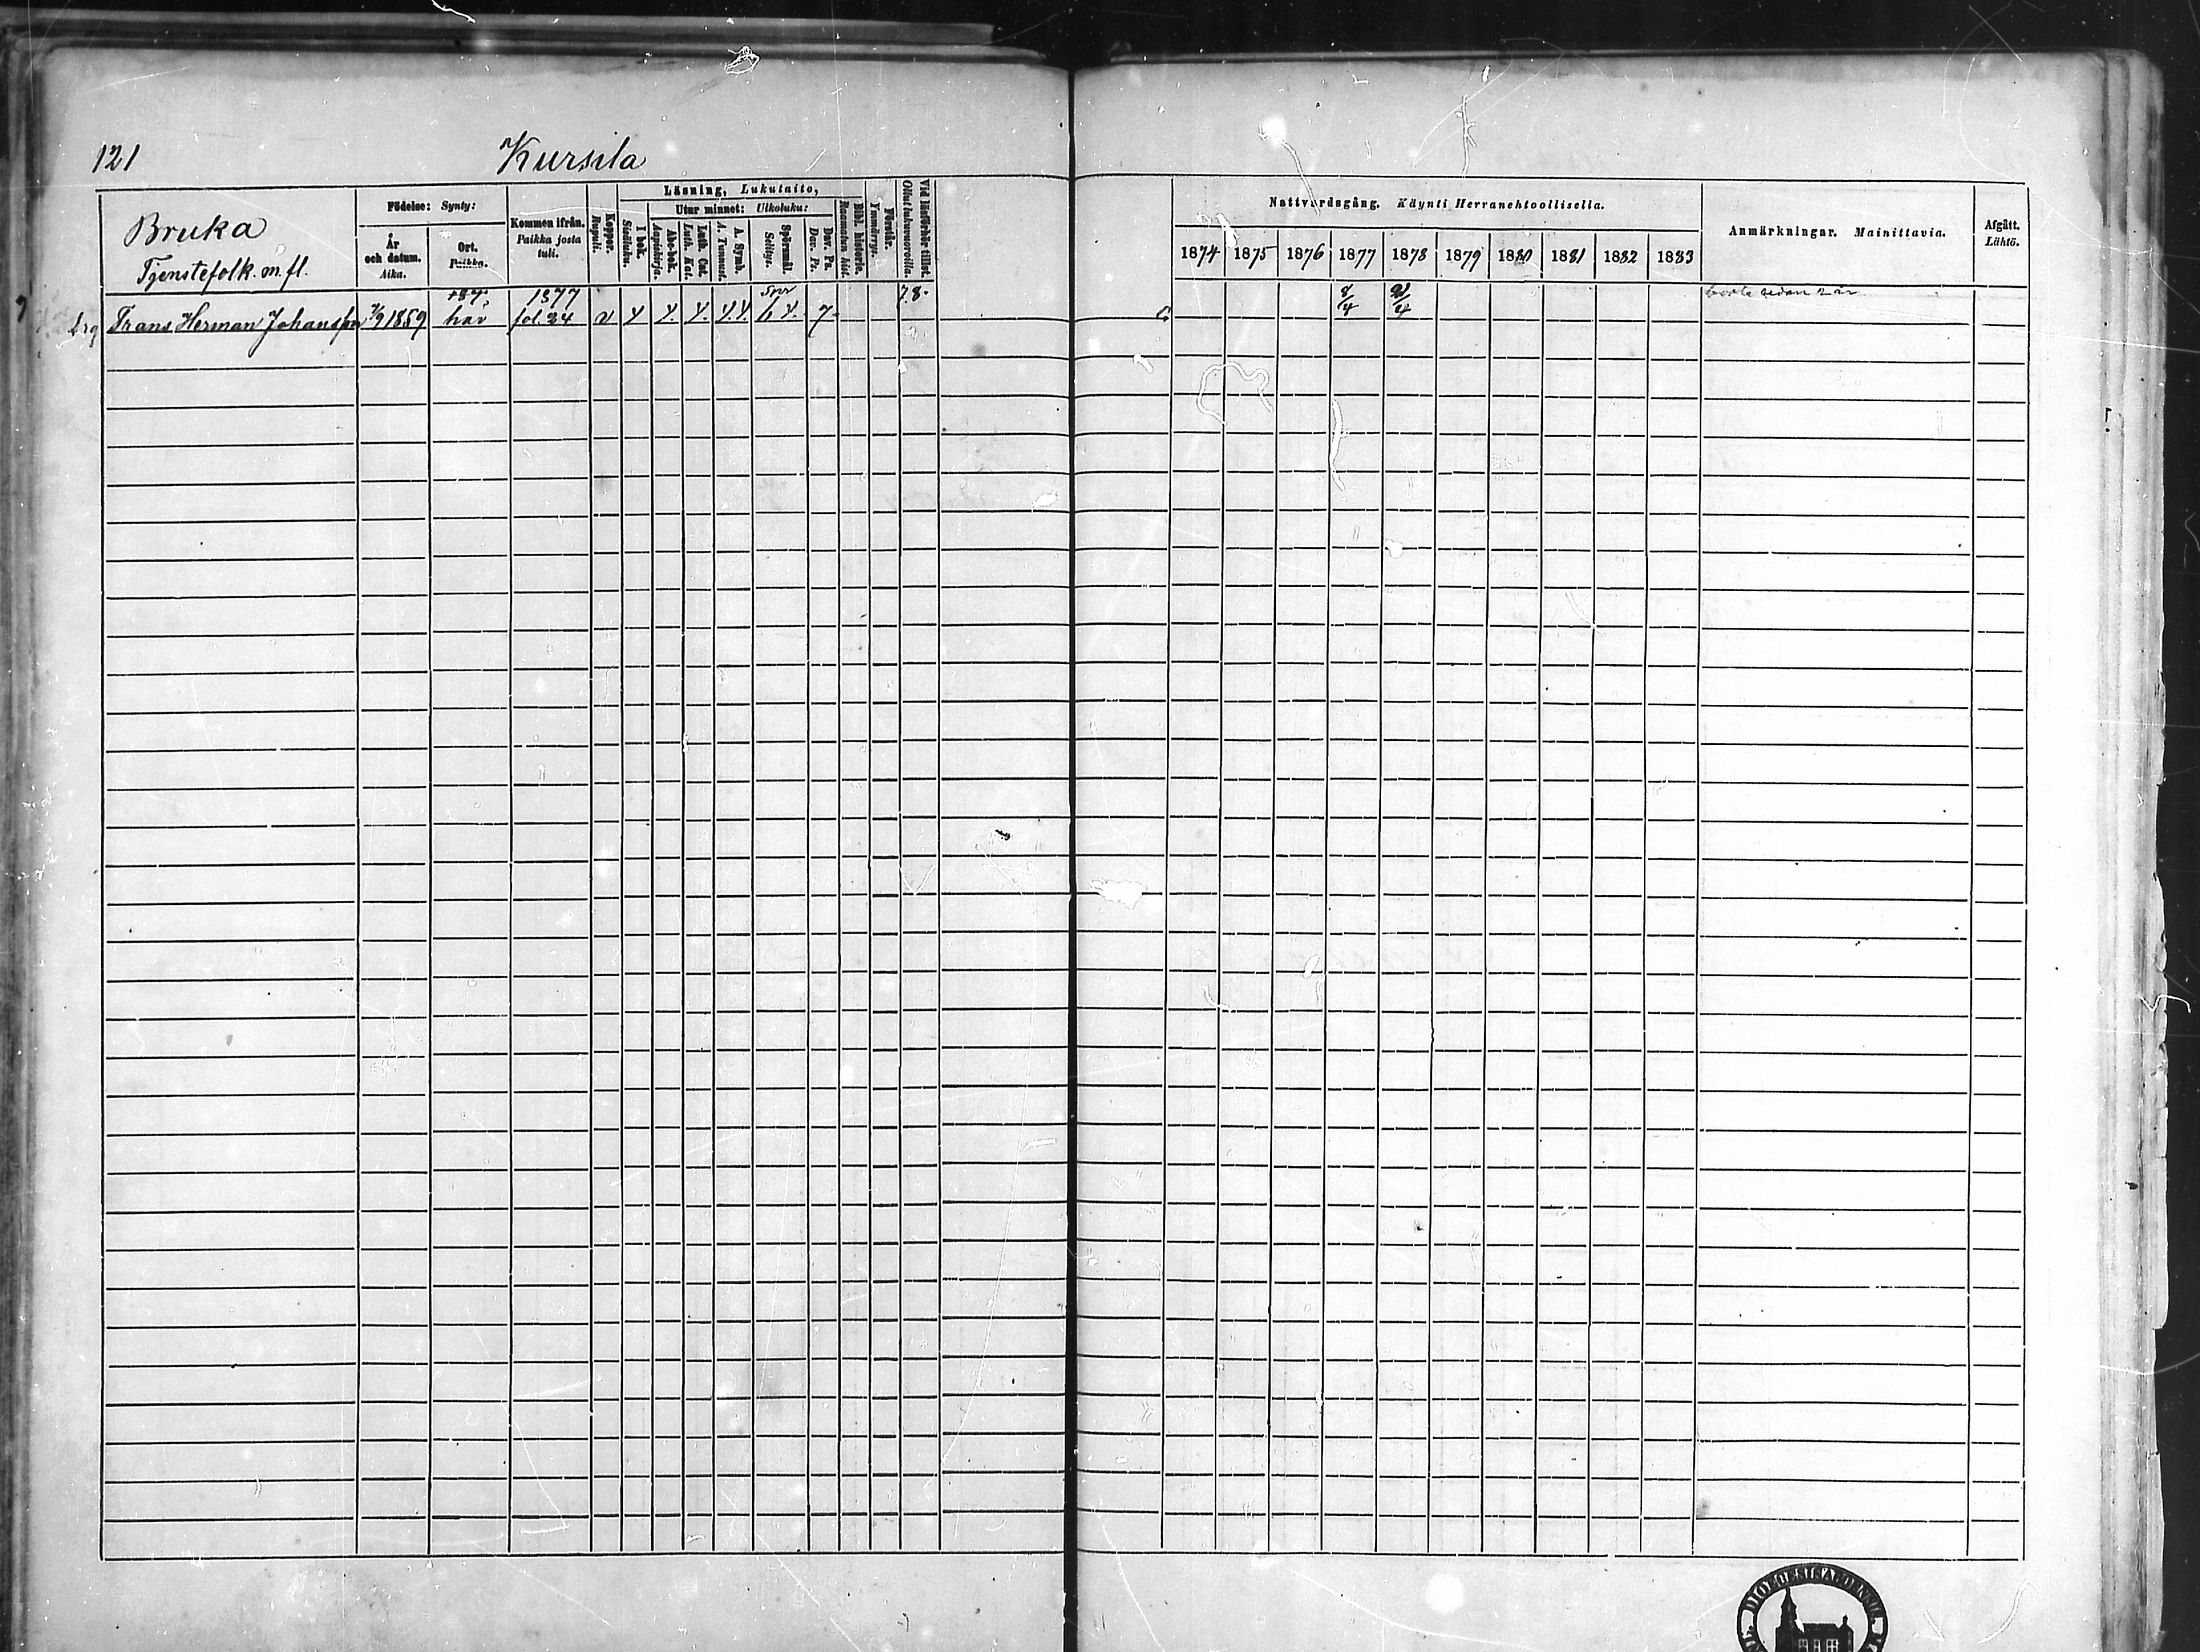 121
Kursila
Bruka
Tjenstefolk. m. fl.
Födelse: Synty:
År och datum. Aika.
Ort. Paikka.
Kommen ifrån. Paikka josta tuli.
Koppor. Rupuli.
Läsning, Lukutaito,
I bok. Sisäluku.
Utur minnet: Ulkoluku:
Abc-bok. Aapiskirja.
Luth. Cat. Luth. Kat.
A. Symb. A. Tunnust.
Spörsmål. Selitys.
Dav. Ps. Dav. Ps.
Bibl. historie. Raamatun hist.
Förstår. Ymmärrys.
Vid läsförhör tillst. Ollut lukuvuoroilla.
Nattvardsgång. Käynti Herranehtoollisella.
1874 1875 1876 1877 1878 1879 1880 1881 1882 1883
Anmärkningar. Mainittavia.
Afgått. Lähtö.
drg Frans Herman Johansson 7/9 1859 här 1877 fol. 24 v 7 78. 8/4 21/4 borta sedan 2 år